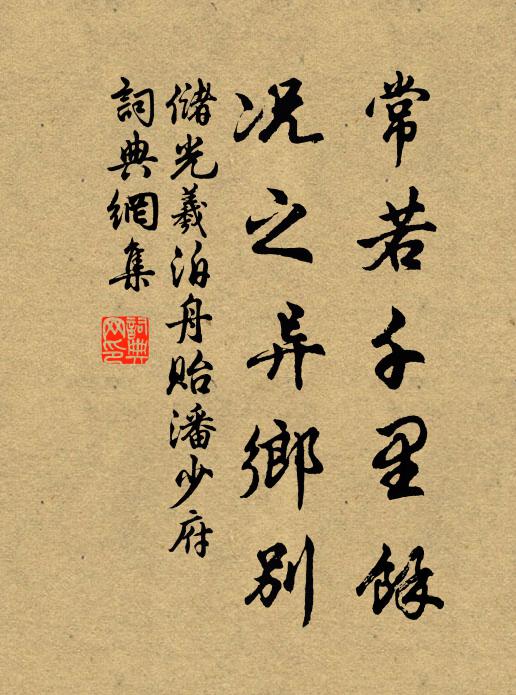 常若千里餘
况之异鄉別
儲光羲泊舟貽潘少府
詞典網集
詞典網印